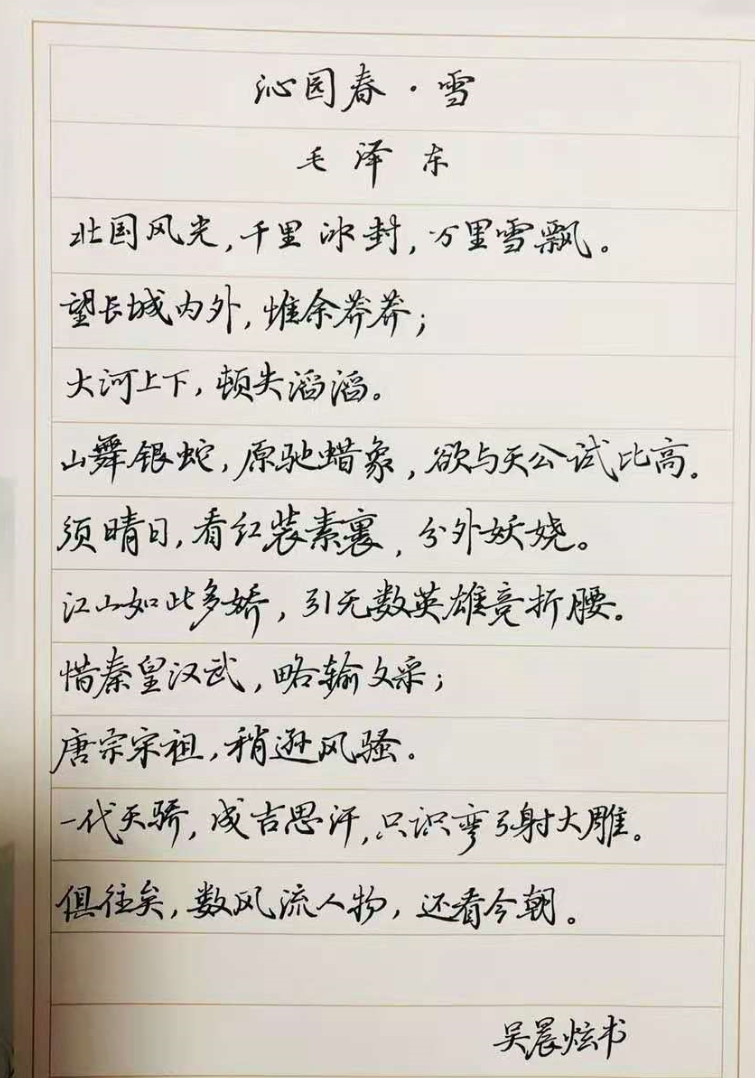 沁园春·雪
毛泽东
北国风光,千里冰封,万里雪飘。
望长城内外,惟余莽莽;
大河上下,顿失滔滔。
山舞银蛇,原驰蜡象,欲与天公试比高。
须晴日,看红装素裹,分外妖娆。
江山如此多娇,引无数英雄竞折腰。
惜秦皇汉武,略输文采;
唐宗宋祖,稍逊风骚。
一代天骄,成吉思汗,只识弯弓射大雕。
俱往矣,数风流人物,还看今朝。
吴晨炫书